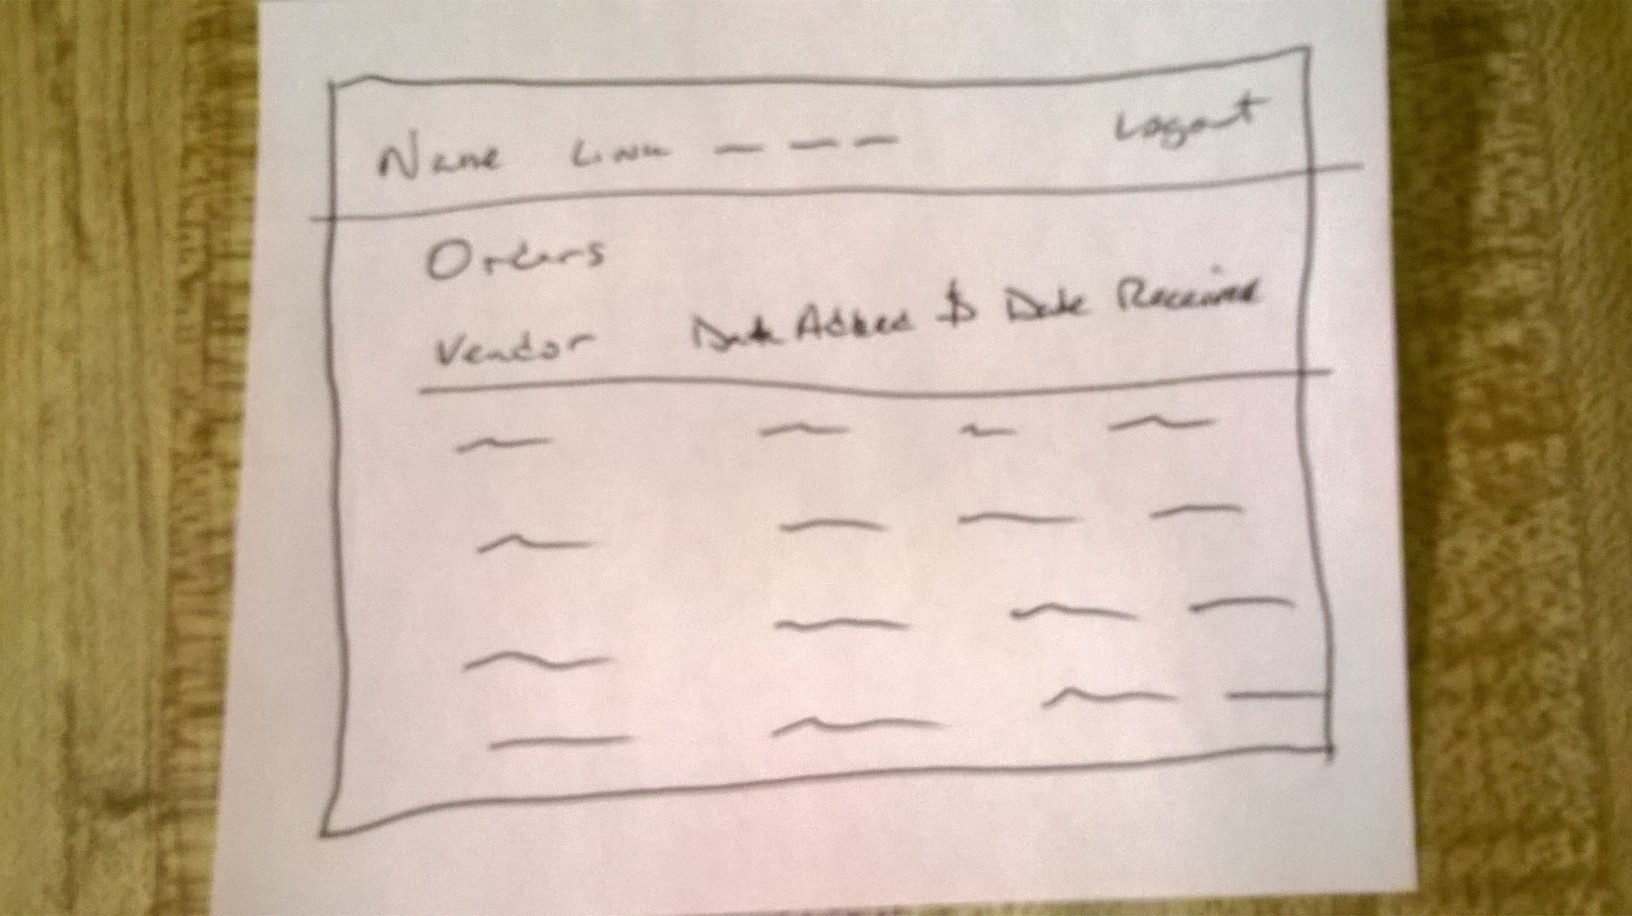 Name Link Logout
Orders
Vendor Date Added $ Date Received